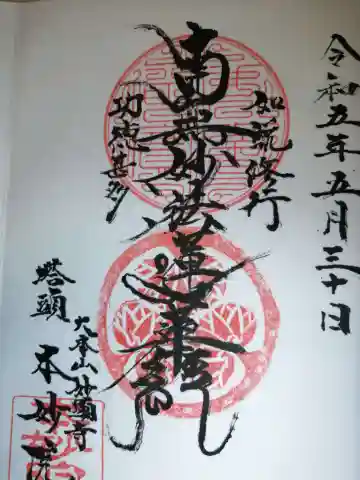 令和五年五月三十日
如説修行
南無妙法蓮華経
功徳甚多
大本山妙顕寺
塔頭
本妙院